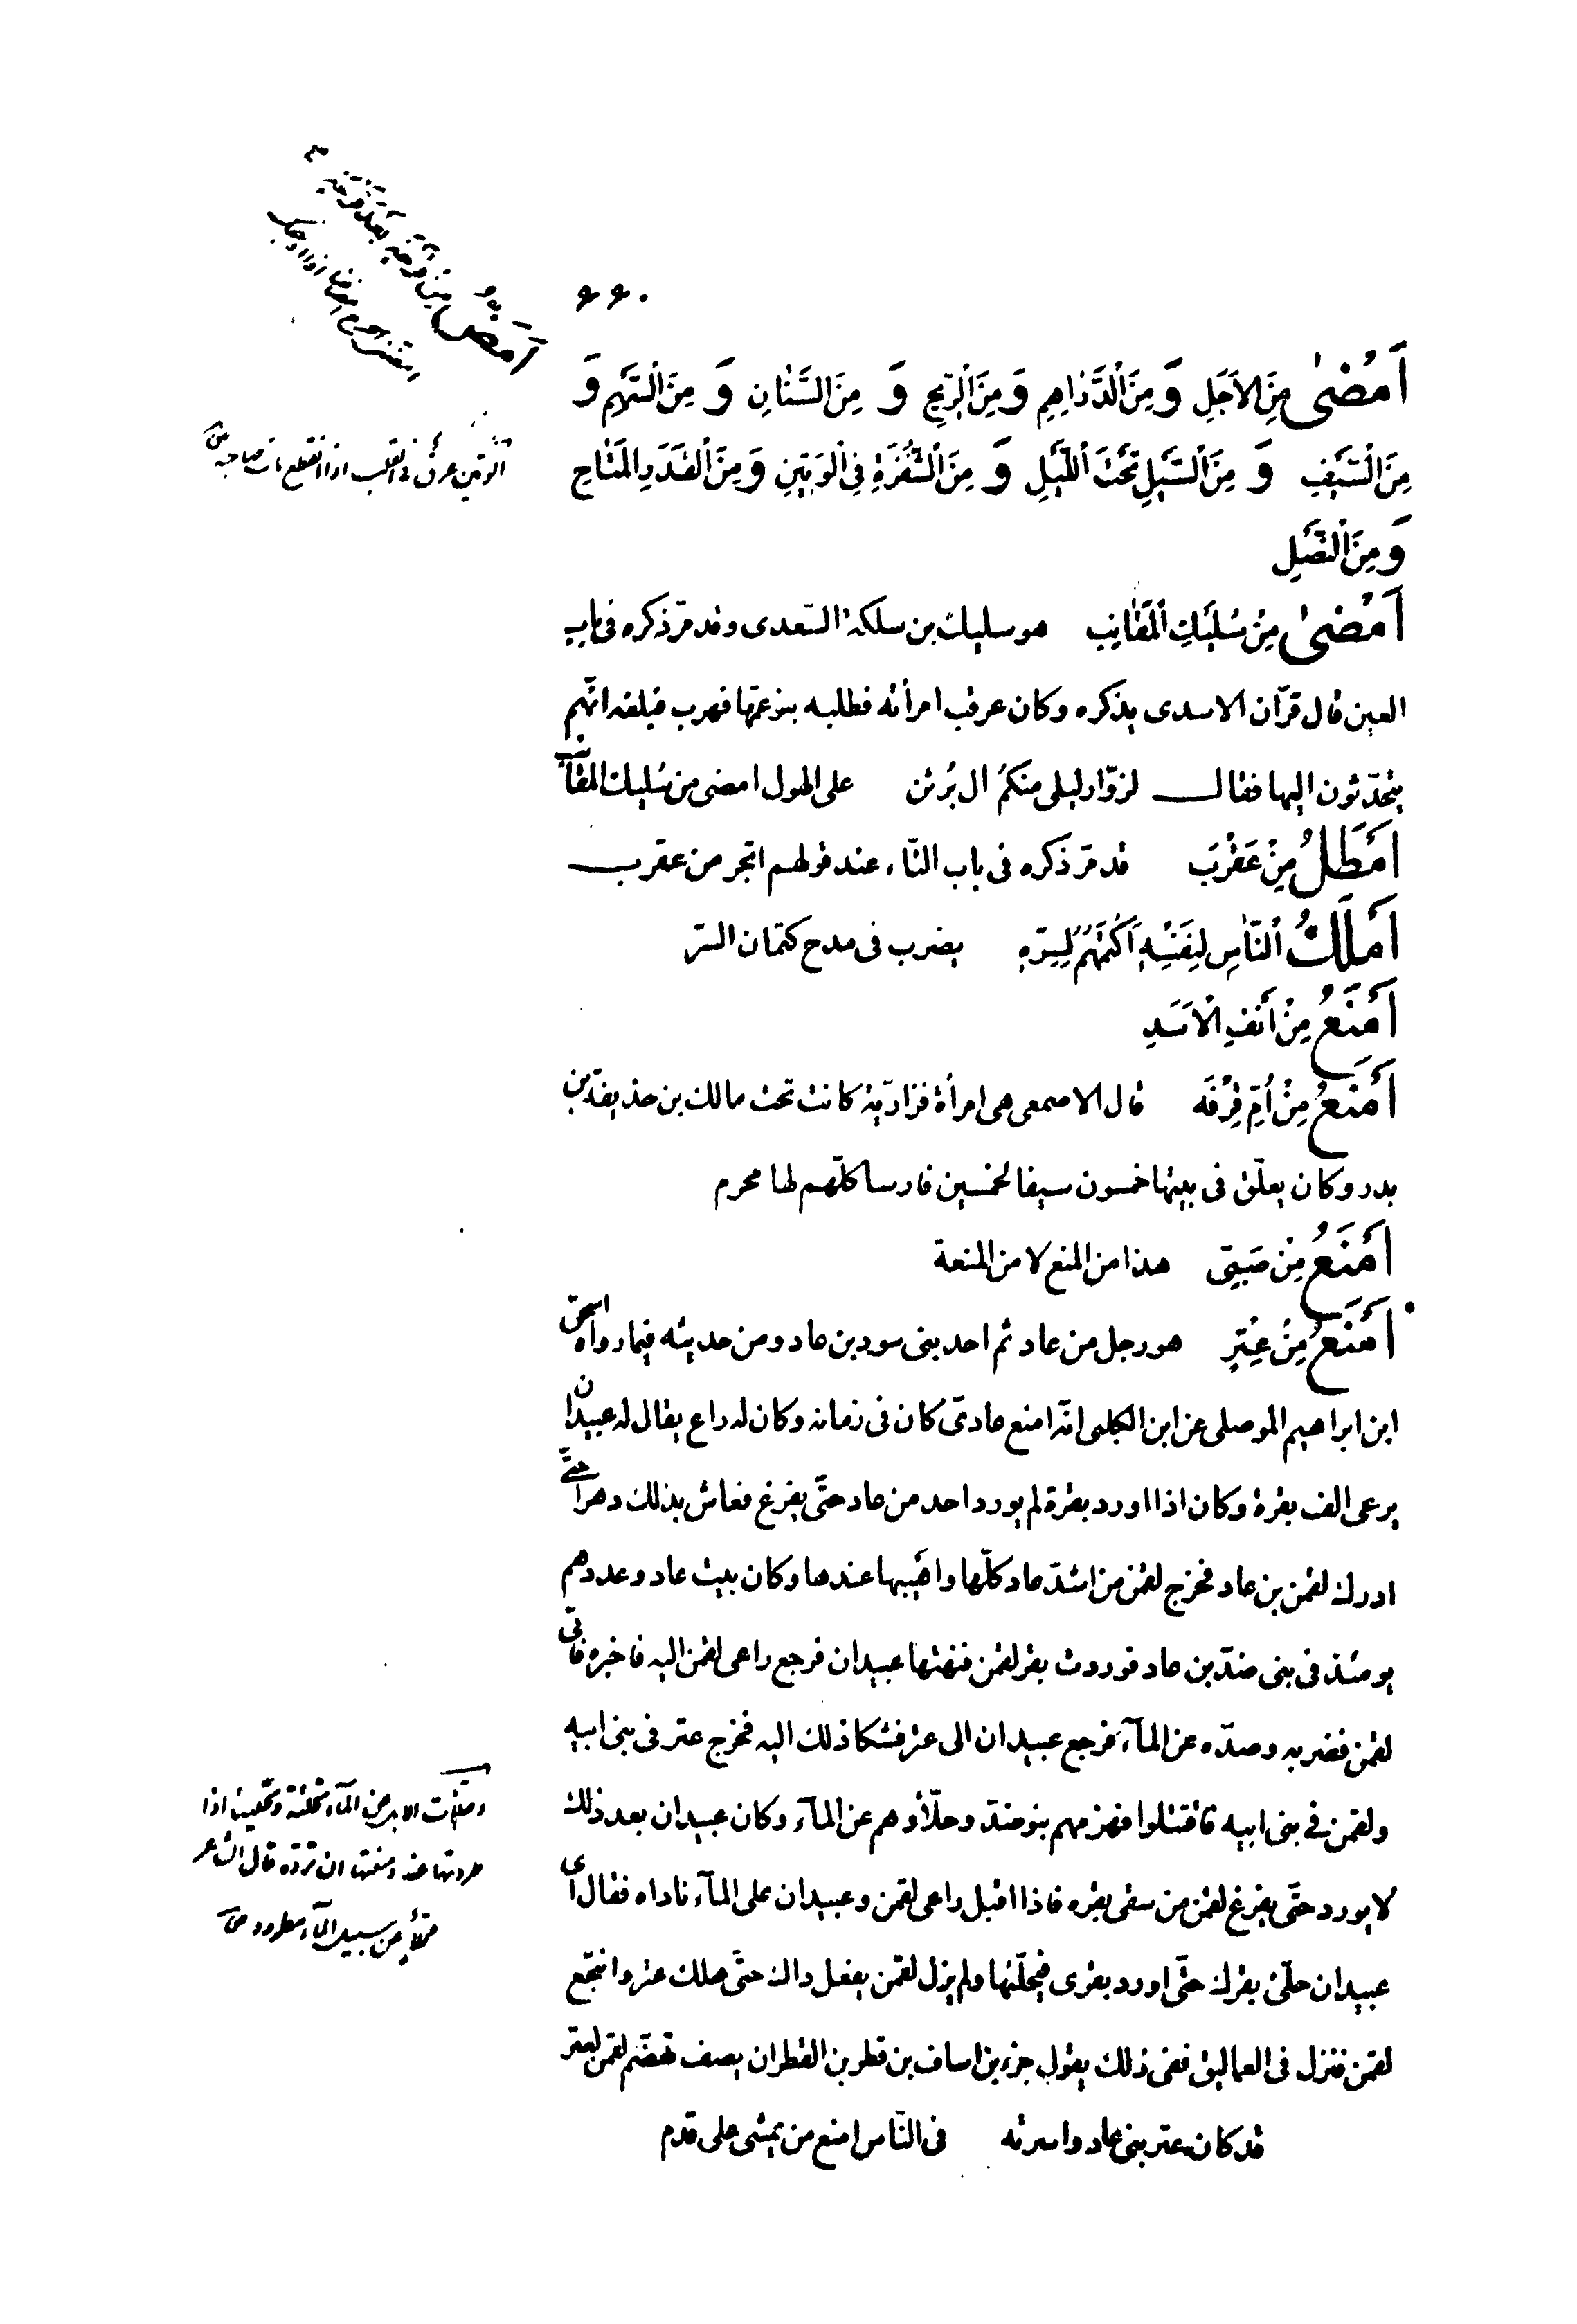 ۶۶۰
اَمْضٰى مِنَ الْاَجَلِ وَ مِنَ الدَّرَاهِمِ وَ مِنَ الرِّيحِ وَ مِنَ السِّنَانِ وَ مِنَ السَّهْمِ وَ
مِنَ السَّيْفِ وَ مِنَ السَّيْلِ تَحْتَ اللَّيْلِ وَ مِنَ الشَّفْرَةِ فِى الْوَتِينِ وَ مِنَ الْقَدَرِ الْمُتَاحِ
الوتين عرق فى القلب اذا انقطع مات صاحبه
وَ مِنَ النَّصْلِ
اَمْضٰى مِنْ سُلَيْكِ الْمَقَانِبِ هو سليك بن سلكة السّعدى وقد مرّ ذكره فى باب
العين قال قرّان الاسدى يذكره وكان عرقب امرأته فطلبه بنو عمّها فهرب فبلغه انّهم
يتحدّثون اليها فقال لزوّار ليلى منكمُ ال بُرثن على الهول امضى من سُليك المقانب
اَمْطَلُ مِنْ عَقْرَبَ قد مرّ ذكره فى باب التّاء عند قولهم اتجر من عقرب
اَمْلَكُ النَّاسِ لِنَفْسِهِ اَكْتَمُهُمْ لِسِرِّهِ يضرب فى مدح كتمان السّر
اَمْنَعُ مِنْ اَنْفِ الْاَسَدِ
اَمْنَعُ مِنْ اُمِّ قِرْفَةَ قال الاصمعى هى امرأة فزاريّة كانت تحت مالك بن حذيفة بن
بدر وكان يعلّق فى بيتها خمسون سيفا لخمسين فارسا كلّهم لها محرم
اَمْنَعُ مِنْ صَبِىٍّ هذا من المنع لا من المنعة
اَمْنَعُ مِنْ عِتْرٍ هو رجل من عاد ثم احد بنى سود بن عاد ومن حديثه فيما رواه اسحق
ابن ابراهيم الموصلى عن ابن الكلبى انّه امنع عادىّ كان فى زمانه وكان له راع يقال له عبيدان
يرعى الف بقرة وكان اذا اورد بقرة لم يورد احد من عاد حتّى يفرغ فعاش بذلك دهرا حتّى
ادرك لقمن بن عاد فخرج لقمن من اشدّ عاد كلّها واهيبها عندها وكان بيت عاد وعددهم
يومئذ فى بنى ضدّ بن عاد فوردت بقر لقمن فنهتها عبيدان فرجع راعى لقمن اليه فاخبره فاتى
لقمن فضربه وصدّه عن المآء فرجع عبيدان الى عتر فشكا ذلك اليه فخرج عتر فى بنى ابيه
ولقمن فى بنى ابيه فاقتتلوا فهزمهم بنو ضدّ وحلّأوهم عن المآء وكان عبيدان بعد ذلك
لا يورد حتّى يفرغ لقمن من سقى بقره فاذا اقبل راعى لقمن وعبيدان على المآء ناداه فقال اى
عبيدان حلّئ بقرك حتّى اورد بقرى فيحلّئها ولم يزل لقمن يفعل ذاك حتّى هلك عتر وانتجع
لقمن فنزل فى العماليق ففى ذلك يقول جزء بن اساف بن قطر بن القطران يصف تهضّم لقمن لعتر
قد كان عتر بنى عاد واسرته فى النّاس امنع من يمشى على قدم
وحلّأت الابل عن المآء تحلئة وتحليئا اذا
طردتها عنه ومنعتها ان ترده قال الشاعر
محلّأٍ عن سبيل المآء مطرود